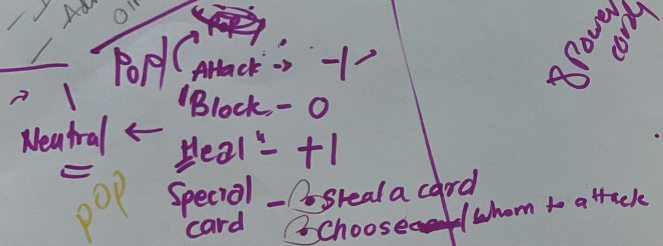 POP
Attack → -1
"Block - 0
Neutral ← Heal" - +1
Special card - Steal a card
Choose whom to attack
POP
8 Power cards